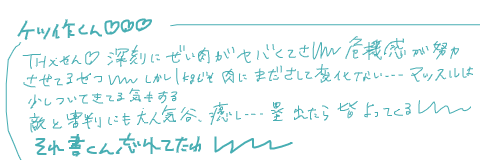 ケツ作くん♡♡♡
THxやん♡ 深刻にぜい肉がヤバくてさ〰 危機感が努力
させてるぜつ〰 しかしほども肉にまださして変化ナない… マッスルは
少しついてきてる気もする
敵と審判にも大人気谷、癒し… 塁出たら皆よってくる〰
それ書くん忘れてたわ 〰